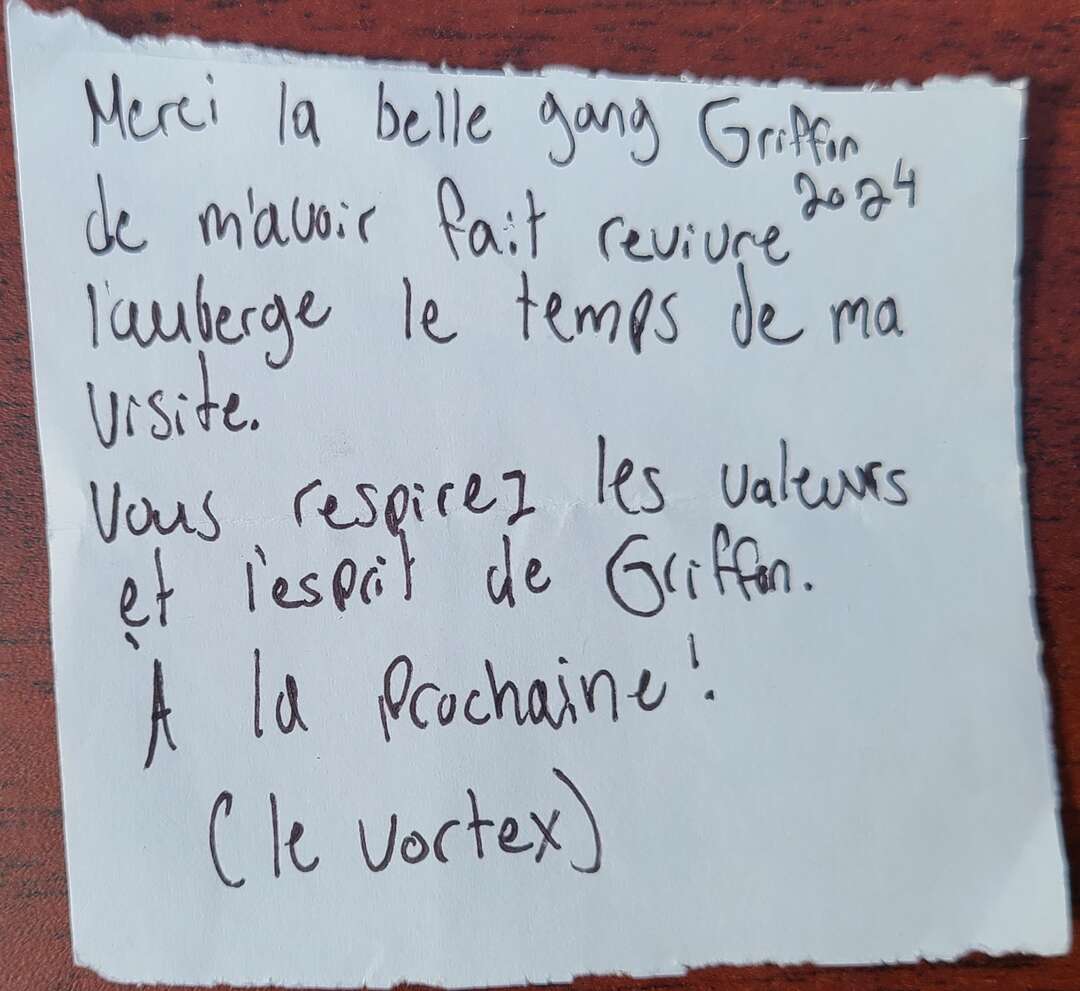 Merci la belle gang Griffon
2024
de m'avoir fait revivre
l'auberge le temps de ma
visite.
Vous respirez les valeurs
et l'esprit de Griffon.
À la prochaine!
(le vortex)